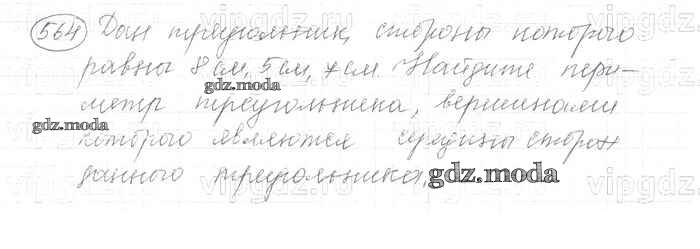 564 Дан треугольник, стороны которого
равны 8 см, 5 см, 7 см. Найдите пери-
метр треугольника, вершинами
которого являются середины сторон
данного треугольника.
gdz.moda
gdz.moda
gdz.moda
vipgdz
vipgdz.ru
vipgdz.ru
vipgdz